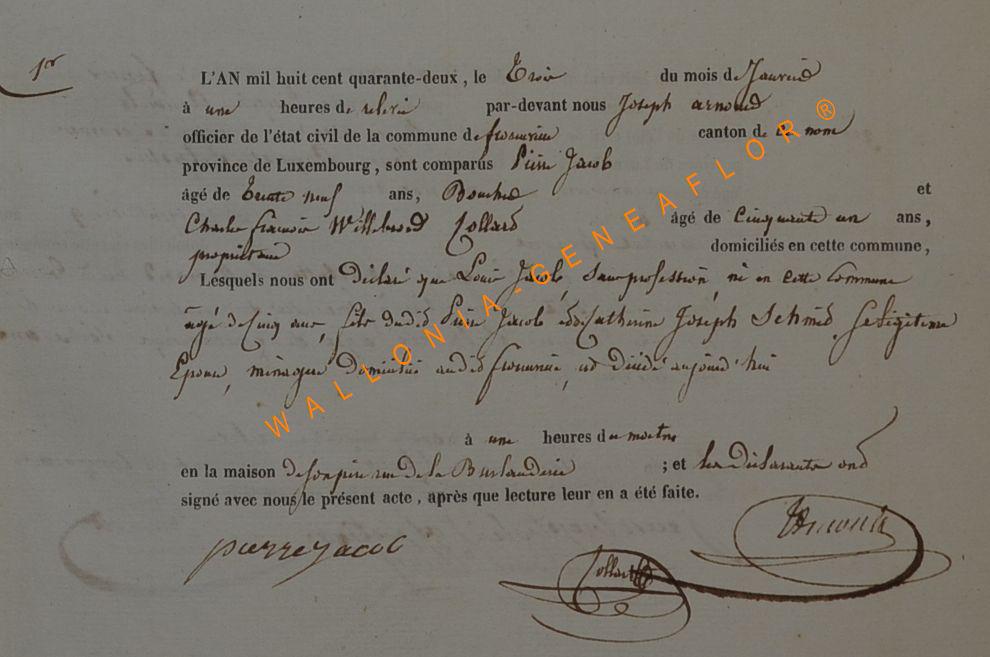 1er
L'AN mil huit cent quarante-deux, le Trois du mois de Janvier
à une heures de relevée par-devant nous Joseph arnould
officier de l'état civil de la commune de canton de ce nom
province de Luxembourg, sont comparus Pierre Jacob
âgé de trente neuf ans, Boucher et
Charles francois Willibrord Collard âgé de Cinquante un ans,
propriétaire domiciliés en cette commune,
Lesquels nous ont Déclaré que Louis Jacob, sans profession, né en cette Commune
agé de Cinq ans, fils dudid Pierre Jacob et de Catherine Joseph Schmid, Sa légitime
Epouse, ménagère Domiciliés audid, est décédé aujourd'hui
à une heures du matin
en la maison de son père rue de la ; et les déclarants ond
signé avec nous le présent acte, après que lecture leur en a été faite.
pierre jacob
Collard
Arnould
WALLONIA-GENEAFLOR®